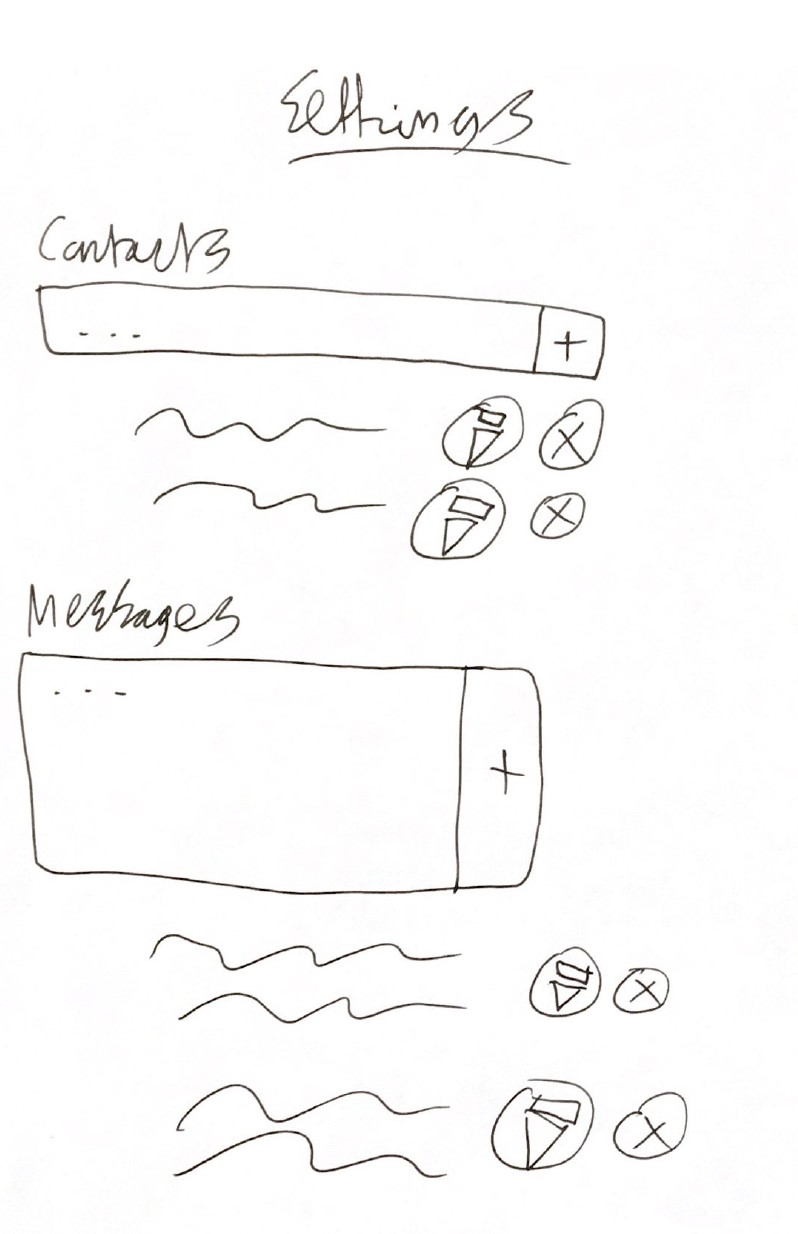 Settings
Contacts
...
+
Messages
...
+